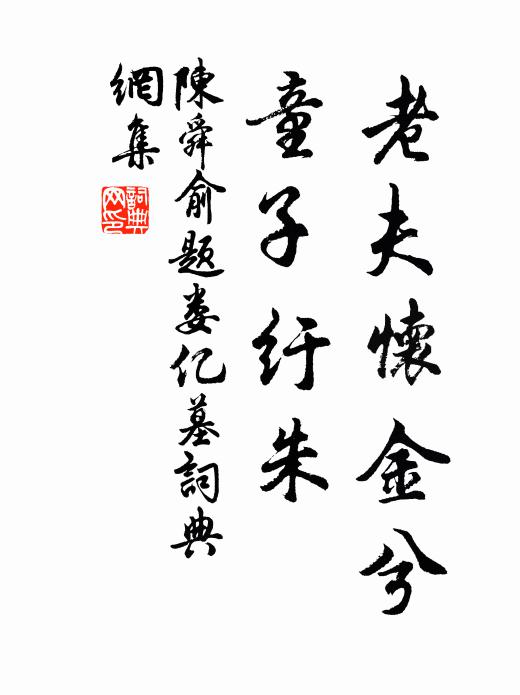 老夫懷金兮
童子紆朱
陳舜俞題娄亿墓詞典
網集
詞典
网印